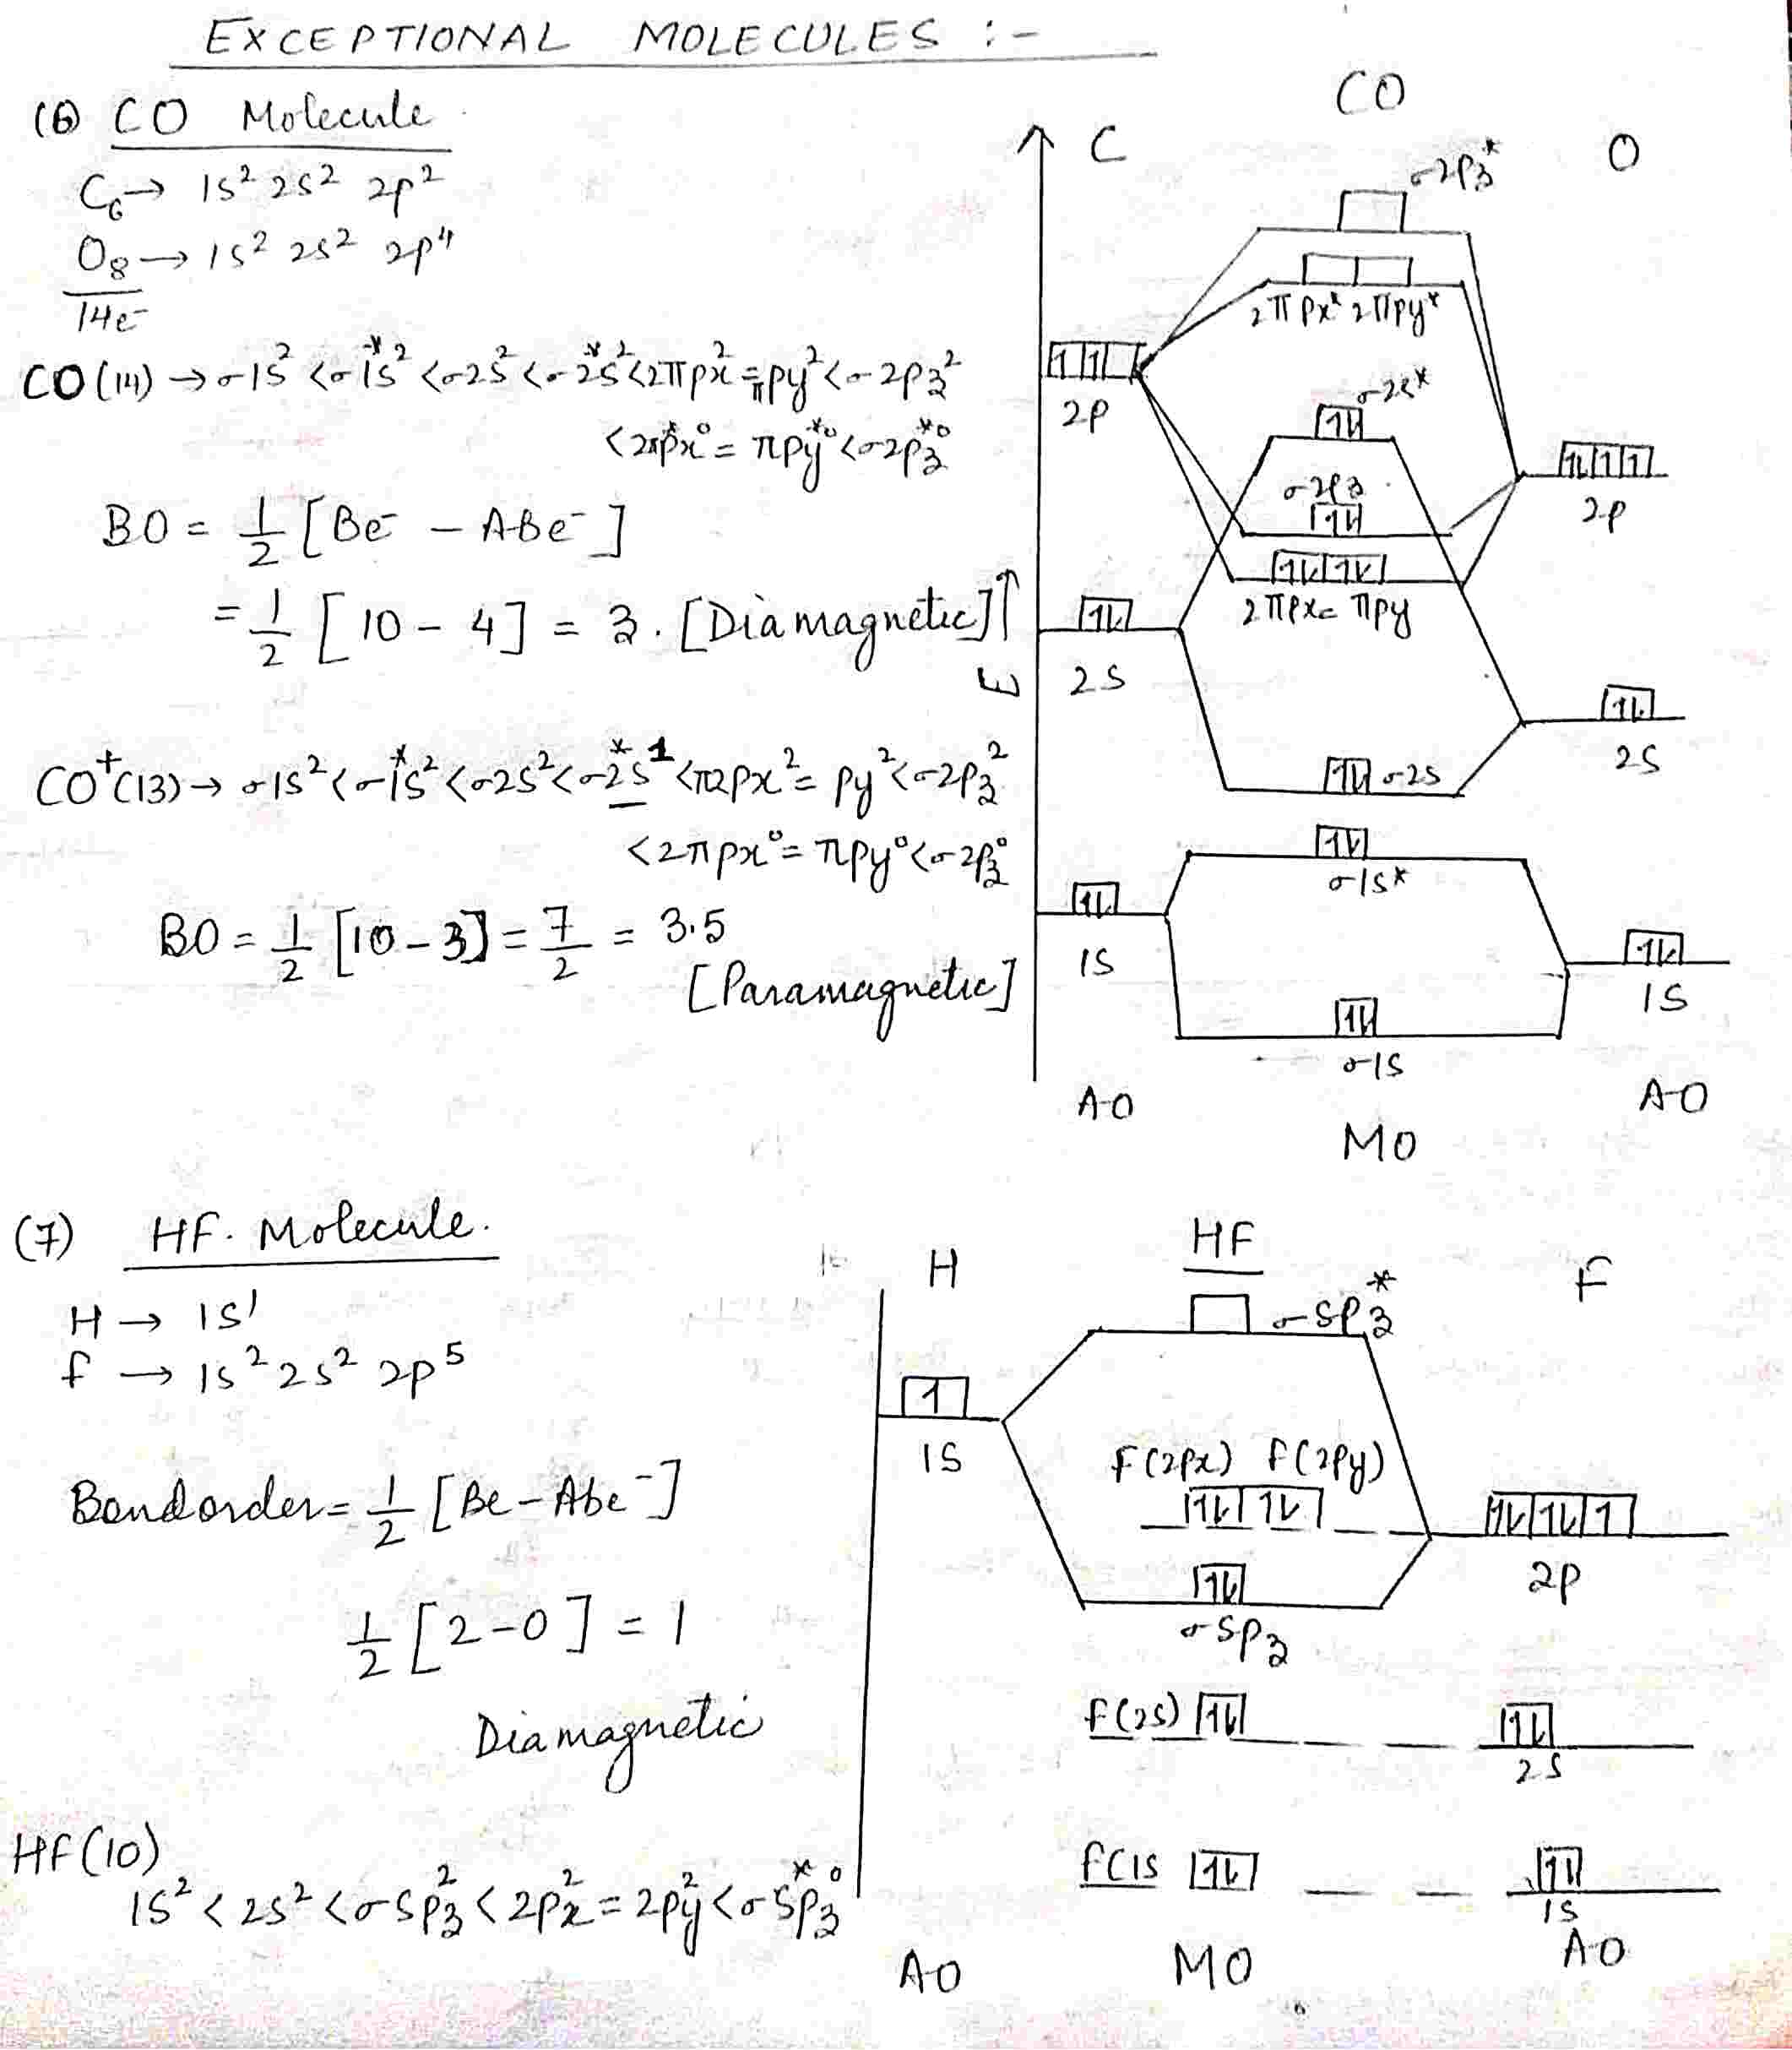 EXCEPTIONAL MOLECULES :-
(6) CO Molecule
C₆ → 1s² 2s² 2p²
O₈ → 1s² 2s² 2p⁴
14e⁻
CO (14) → σ1s² < σ*1s² < σ2s² < σ*2s² < 2πpx² = πpy² < σ2pz²
< 2π*px⁰ = πpy*⁰ < σ2pz*⁰
BO = 1/2 [Be⁻ - ABe⁻]
= 1/2 [10 - 4] = 3. [Diamagnetic]
CO⁺(13) → σ1s² < σ*1s² < σ2s² < σ*2s¹ < π2px² = py² < σ2pz²
< 2πpx⁰ = πpy⁰ < σ2pz⁰
BO = 1/2 [10 - 3] = 7/2 = 3.5
[Paramagnetic]
CO
C
O
σ2pz*
2πpx* 2πpy*
2p
σ2s*
σ2pz
2p
2πpx = πpy
E
2s
2s
σ2s
σ1s*
1s
1s
σ1s
AO
AO
MO
(7) HF. Molecule.
H → 1s¹
F → 1s² 2s² 2p⁵
Bond order = 1/2 [Be - Abe⁻]
1/2 [2 - 0] = 1
Diamagnetic
HF (10)
1s² < 2s² < σspz² < 2px² = 2py² < σspz*⁰
HF
H
F
σspz*
1s
F(2px) F(2py)
2p
σspz
F(2s)
2s
F(1s
1s
AO
MO
AO